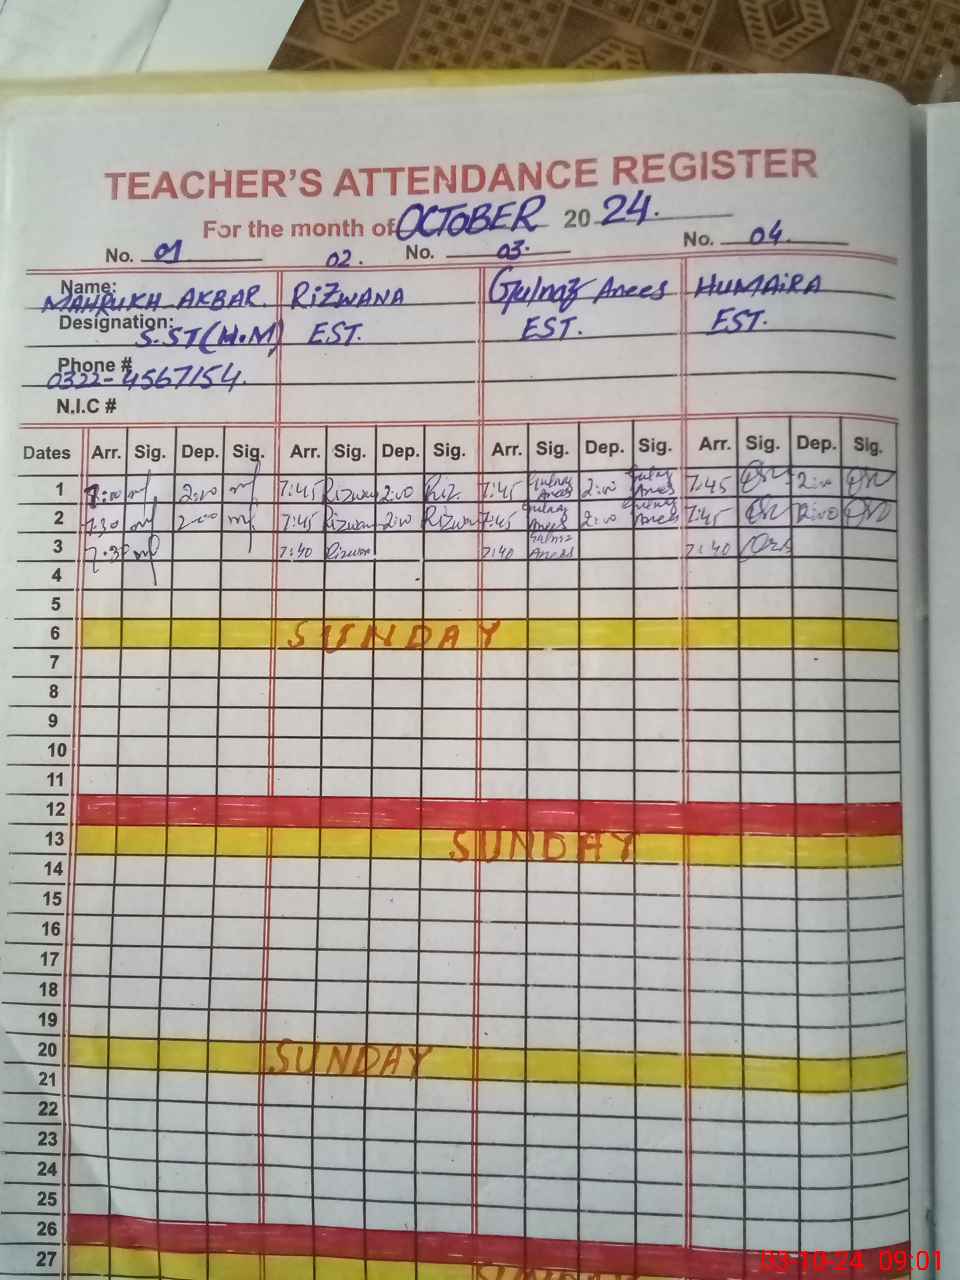 TEACHER'S ATTENDANCE REGISTER
For the month of OCTOBER 2024.
No. 01 02. No. 03. No. 04.
Name: MAHRUKH AKBAR. RIZWANA Gulnaz Anees HUMAIRA
Designation: S.ST(H.M) EST. EST. EST.
Phone # 0322-4567154.
N.I.C #
Dates Arr. Sig. Dep. Sig. Arr. Sig. Dep. Sig. Arr. Sig. Dep. Sig. Arr. Sig. Dep. Sig.
1 2:00 7:45 Rizwan 2:00 Riz. 7:45 Gulnaz Anees 2:00 Gulnaz Anees 7:45 2:00
2 7:30 2:00 7:45 Rizwan 2:00 Rizwan 7:45 Gulnaz Anees 2:00 Gulnaz Anees 7:45 2:00
3 7:30 7:40 Rizwan 7:40 Gulnaz Anees 7:40
4
5
6 SUNDAY
7
8
9
10
11
12
13 SUNDAY
14
15
16
17
18
19
20 SUNDAY
21
22
23
24
25
26
27 SUNDAY
03-10-24 09:01